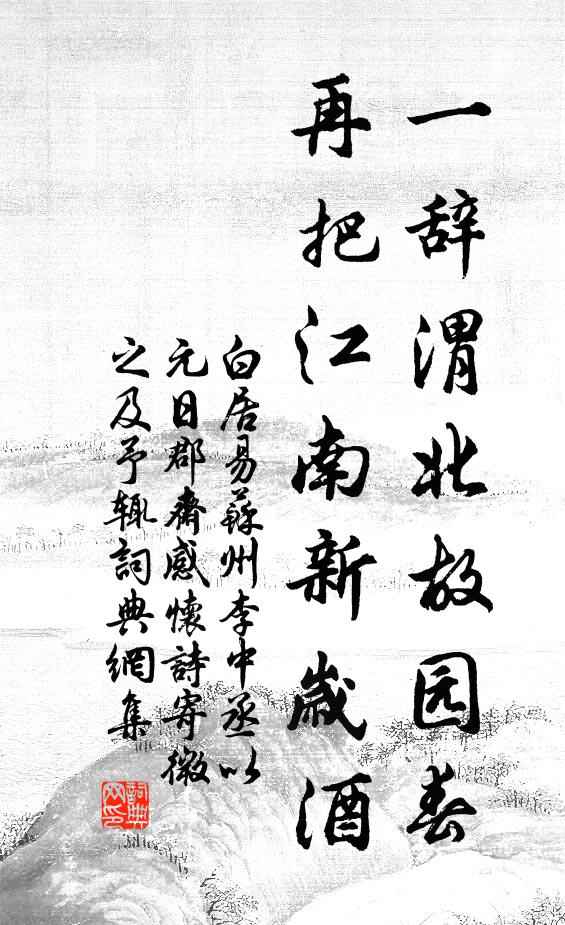 一辞渭北故园春
再把江南新嵗酒
白居易蘇州李中丞以
元日郡齋感懷詩寄微
之及予輒詞典網集
詞典
网印